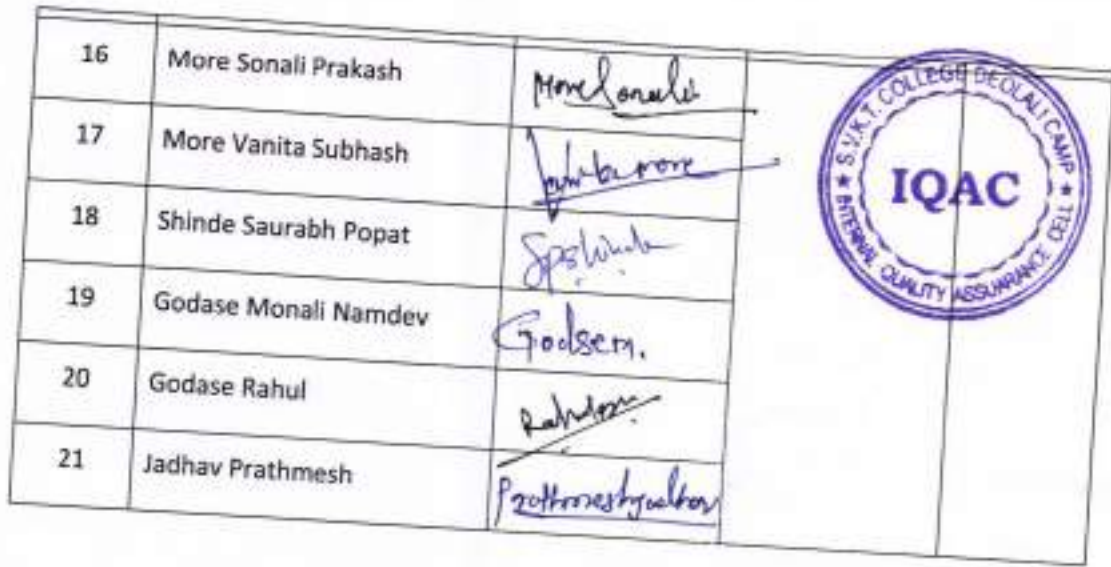 16 More Sonali Prakash More Sonali
17 More Vanita Subhash more
18 Shinde Saurabh Popat SpShinde
19 Godase Monali Namdev Godsem.
20 Godase Rahul
21 Jadhav Prathmesh
S.V.K.T. COLLEGE DEOLALI CAMP
IQAC
★ INTERNAL QUALITY ASSUARANCE CELL ★